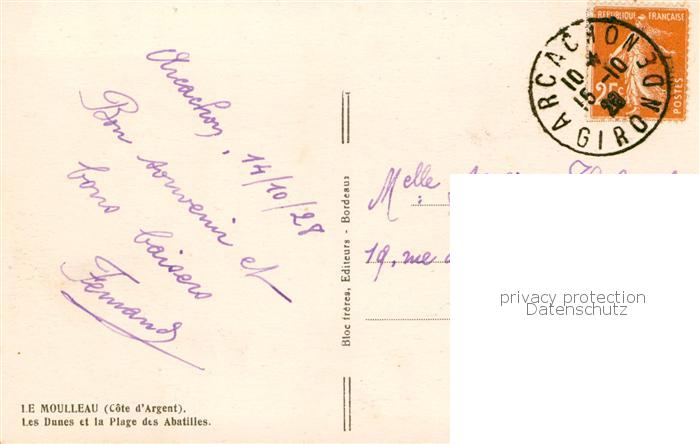 Arcachon, 14/10/28
Bon souvenir et
bons baisers
Fernand
LE MOULLEAU (Côte d'Argent).
Les Dunes et la Plage des Abatilles.
Bloc frères, Editeurs - Bordeaux
REPUBLIQUE FRANÇAISE
25c
POSTES
ARCACHON
GIRONDE
10 *
15-10
28
Melle
19, rue
privacy protection
Datenschutz